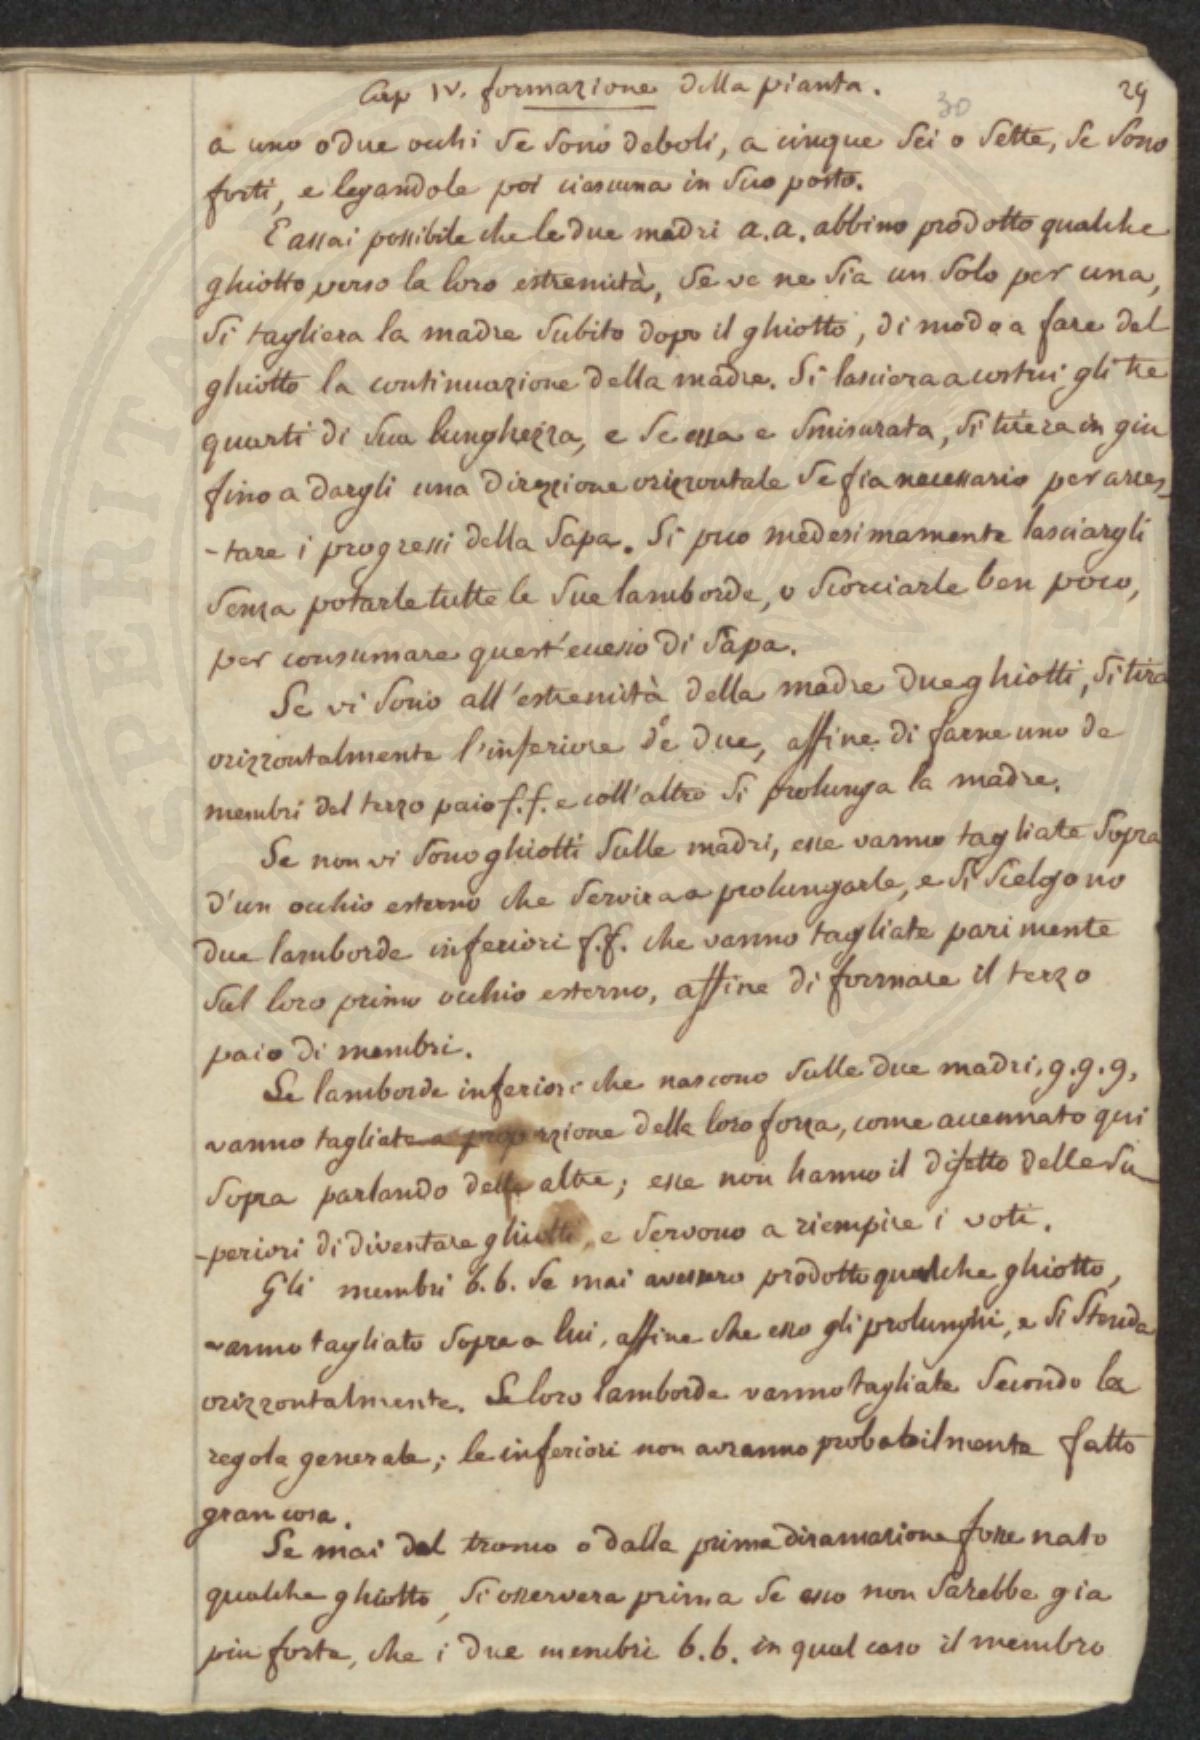 Cap IV. formazione della pianta.
29
30
a uno o due occhi se sono deboli, a cinque sei o sette, se sono
forti, e legandole poi ciascuna in suo posto.
E assai possibile che le due madri a.a. abbino prodotto qualche
ghiotto verso la loro estremità, se ve ne sia un solo per una,
si tagliera la madre subito dopo il ghiotto, di modo a fare del
ghiotto la continuazione della madre. Si lasciera a costui gli tre
quarti di sua lunghezza, e se essa e smisurata, si tirera in giu
fino a dargli una direzzione orizzontale se fia necessario per arres-
-tare i progressi della sapa. Si puo medesimamente lasciargli
senza potarle tutte le sue lamborde, o scorciarle ben poco,
per consumare quest'ecesso di sapa.
Se vi sono all'estremità della madre due ghiotti, si tira
orizzontalmente l'inferiore de due, affine di farne uno de
membri del terzo paio f.f. e coll'altro si prolunga la madre.
Se non vi sono ghiotti sulle madri, esse vanno tagliate sopra
d'un occhio esterno che servira a prolungarle, e si scelgono
due lamborde inferiori f.f. che vanno tagliate parimente
sul loro primo occhio esterno, affine di formare il terzo
paio di membri.
Le lamborde inferiori che nascono sulle due madri, g.g.g,
vanno tagliate a proporzione della loro forza, come accennato qui
sopra parlando delle altre; esse non hanno il difetto delle su-
-periori di diventare ghiotti, e servono a riempire i voti.
Gli membri b.b. se mai avessero prodotto qualche ghiotto,
vanno tagliato sopra a lui, affine che esso gli prolunghi, e si stenda
orizzontalmente. Le loro lamborde vanno tagliate secondo la
regola generale; le inferiori non avranno probabilmente fatto
gran cosa.
Se mai dal tronco o dalla prima diramazione fosse nato
qualche ghiotto, si osservera prima se esso non sarebbe gia
piu forte, che i due membri b.b. in qual caso il membro